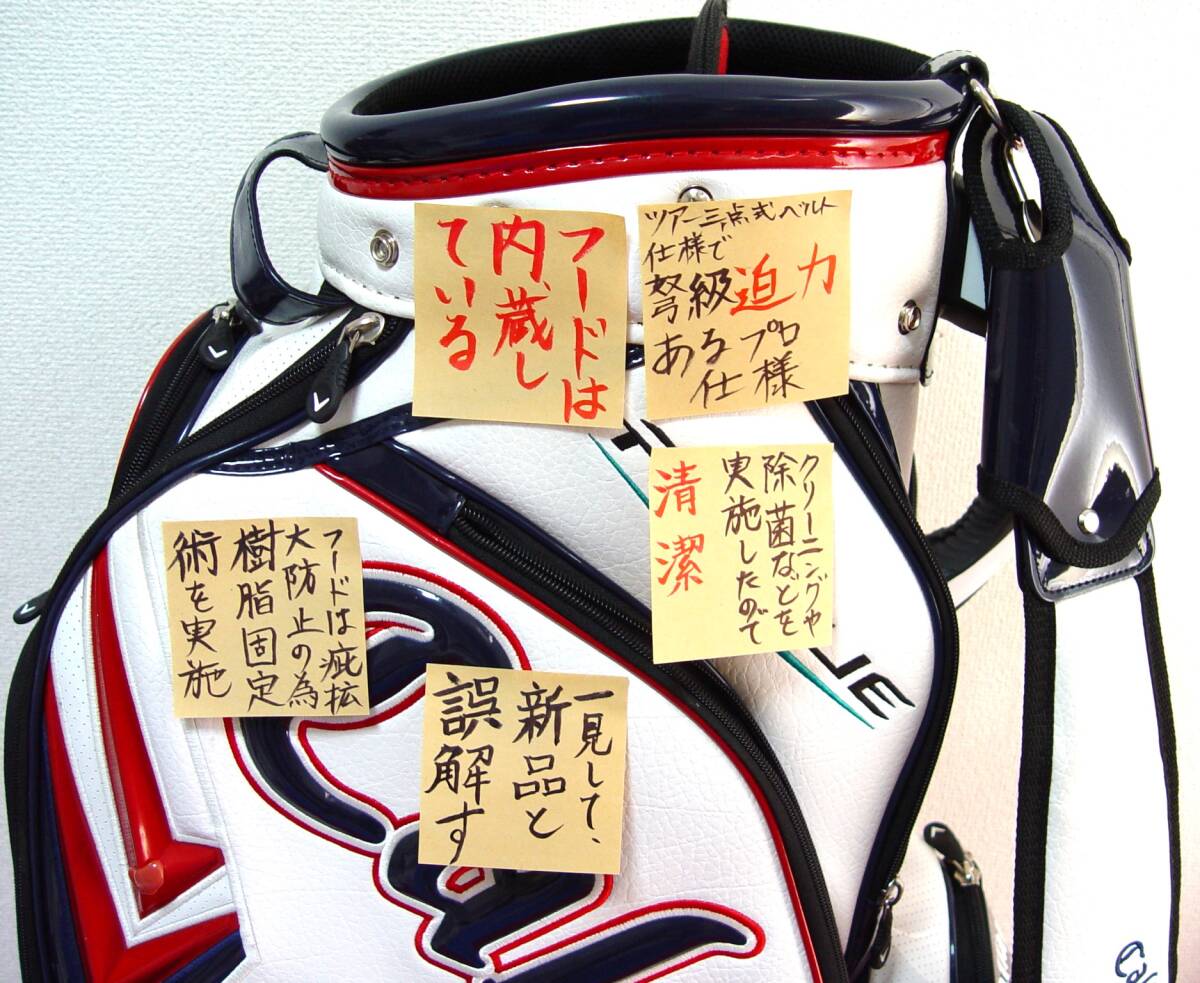 フードは
内蔵し
ている
ツアー三点式ベルト
仕様で
弩級迫力
あるプロ
仕様
クリーニングや
除菌などを
実施したので
清潔
フードは疵拡
大防止の為
樹脂固定
術を実施
一見して、
新品と
誤解す